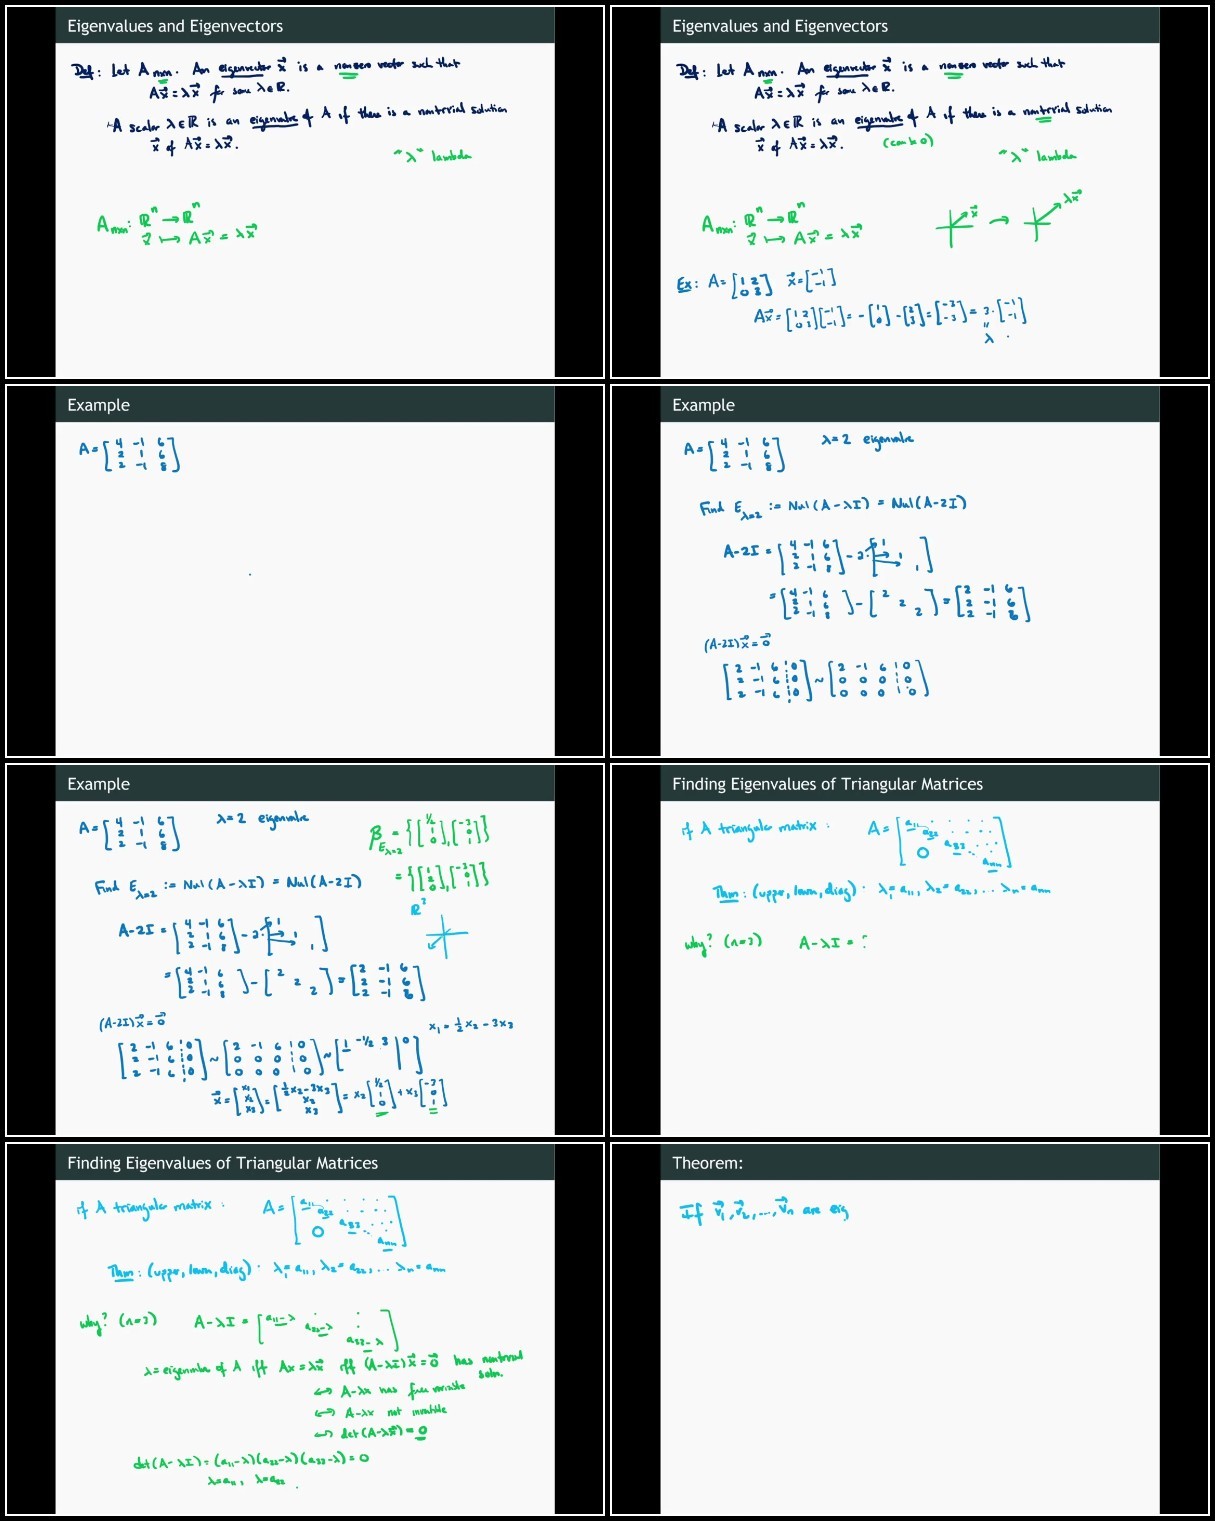 Eigenvalues and Eigenvectors
Def: Let A nxn. An eigenvector x⃗ is a nonzero vector such that
Ax⃗ = λx⃗ for some λ∈ℝ.
A scalar λ∈ℝ is an eigenvalue of A if there is a nontrivial solution
x⃗ of Ax⃗ = λx⃗.
"λ" lambda
A nxn : ℝⁿ → ℝⁿ
x⃗ ↦ Ax⃗ = λx⃗
Eigenvalues and Eigenvectors
Def: Let A nxn. An eigenvector x⃗ is a nonzero vector such that
Ax⃗ = λx⃗ for some λ∈ℝ.
A scalar λ∈ℝ is an eigenvalue of A if there is a nontrivial solution
x⃗ of Ax⃗ = λx⃗. (can be 0)
"λ" lambda
A nxn : ℝⁿ → ℝⁿ x⃗ → λx⃗
x⃗ ↦ Ax⃗ = λx⃗
Ex: A = [1 2; 0 3] x⃗ = [-1; -1]
Ax⃗ = [1 2; 0 3][-1; -1] = -[1; 0] - [2; 3] = [-3; -3] = 3·[-1; -1]
"
λ
Example
A = [4 -1 6; 2 1 6; 2 -1 8]
Example
A = [4 -1 6; 2 1 6; 2 -1 8] λ=2 eigenvalue
Find E λ=2 := Nul(A-λI) = Nul(A-2I)
A-2I = [4 -1 6; 2 1 6; 2 -1 8] - 2·[1 1 1]
= [4 -1 6; 2 1 6; 2 -1 8] - [2 2 2] = [2 -1 6; 2 -1 6; 2 -1 6]
(A-2I)x⃗ = 0⃗
[2 -1 6 | 0; 2 -1 6 | 0; 2 -1 6 | 0] ~ [2 -1 6 | 0; 0 0 0 | 0; 0 0 0 | 0]
Example
A = [4 -1 6; 2 1 6; 2 -1 8] λ=2 eigenvalue
β E λ=2 = {[1/2; 1; 0], [-3; 0; 1]}
= {[1; 2; 0], [-3; 0; 1]}
Find E λ=2 := Nul(A-λI) = Nul(A-2I)
ℝ³
A-2I = [4 -1 6; 2 1 6; 2 -1 8] - 2·[1 1 1]
= [4 -1 6; 2 1 6; 2 -1 8] - [2 2 2] = [2 -1 6; 2 -1 6; 2 -1 6]
(A-2I)x⃗ = 0⃗
x₁ = 1/2 x₂ - 3x₃
[2 -1 6 | 0; 2 -1 6 | 0; 2 -1 6 | 0] ~ [2 -1 6 | 0; 0 0 0 | 0; 0 0 0 | 0] ~ [1 -1/2 3 | 0]
x⃗ = [x₁; x₂; x₃] = [1/2 x₂ - 3x₃; x₂; x₃] = x₂[1/2; 1; 0] + x₃[-3; 0; 1]
Finding Eigenvalues of Triangular Matrices
if A triangular matrix : A = [a₁₁ a₂₂ a₃₃ 0 aₙₙ]
Thm : (upper, lower, diag) · λ₁=a₁₁, λ₂=a₂₂, ... λₙ=aₙₙ
why? (n=3) A-λI = ?
Finding Eigenvalues of Triangular Matrices
if A triangular matrix : A = [a₁₁ a₂₂ a₃₃ 0 aₙₙ]
Thm : (upper, lower, diag) · λ₁=a₁₁, λ₂=a₂₂, ... λₙ=aₙₙ
why? (n=3) A-λI = [a₁₁-λ a₂₂-λ a₃₃-λ]
λ=eigenvalue of A iff Ax=λx⃗ iff (A-λI)x⃗=0⃗ has nontrivial
soln.
↔ A-λx has free variable
↔ A-λx not invertible
↔ det(A-λx⃗)=0
det(A-λI) = (a₁₁-λ)(a₂₂-λ)(a₃₃-λ)=0
λ=a₁₁, λ=a₂₂
Theorem:
If v⃗₁, v⃗₂, ..., v⃗ₙ are eig